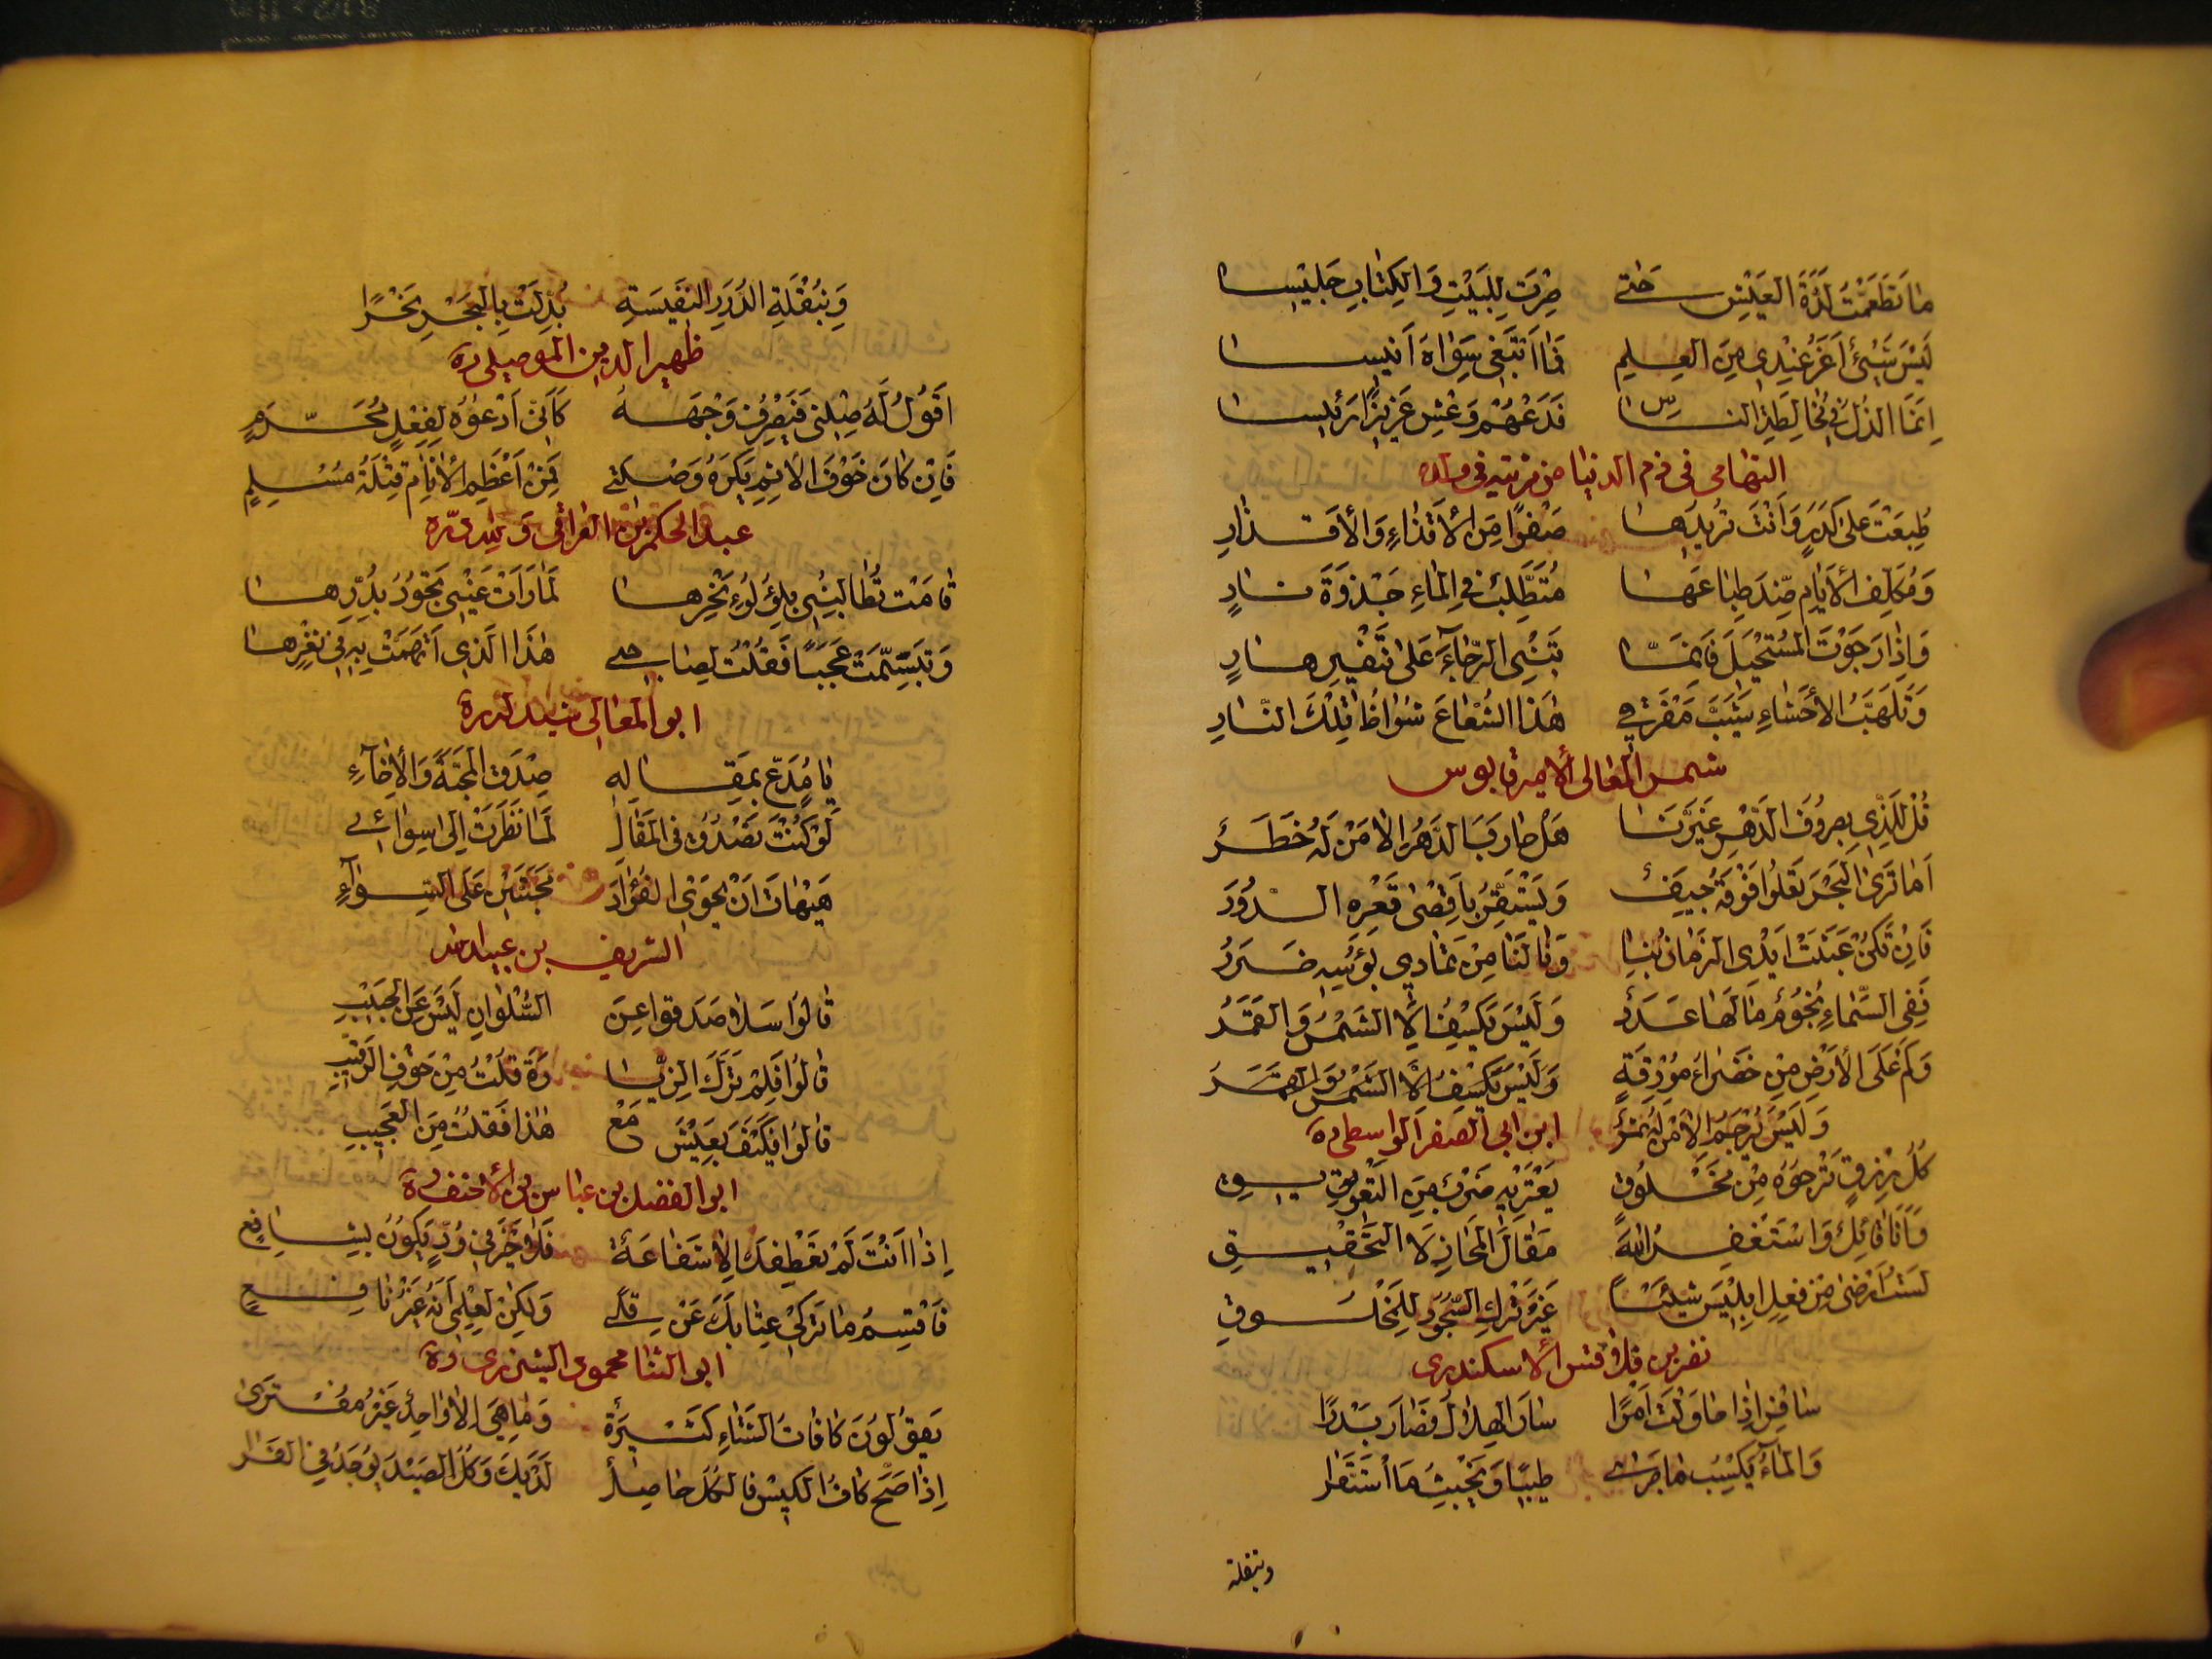 مَا تَطَعَّمْتُ لَذَّةَ العَيْشِ حَتّٰى صِرْتِ لِلبَيْتِ وَالكِتَابِ جَلِيْسا
لَيْسَ شَيْئٌ اَعَزُّ عِنْدِى مِنَ العِلمِ فَمَا اَبْتَغِى سِوَاهُ اَنِيسا
اِنَّمَا الذُلُّ فِى مُخَالَطَةِ الناسِ فَدَعْهُمْ وَعِشِ عَزِيزًا رَئِيسا
التهامى فى ذم الدنيا من مرثيته فى ولده
طُبِعَتْ عَلىٰ كَدَرٍ وَاَنْتَ تُرِيدُهَا صَفْوًا مِنَ الأَقْذَاءِ وَالأَقْذَارِ
وَمُكَلِّفُ الأَيَّامِ ضِدَّ طِبَاعَهَا مُتَطَلِّبٌ فِى المَاءِ جَذْوَةَ نَارٍ
وَاِذَا رَجَوْتَ المُسْتَحِيلَ فَاِنَّمَا تَبْنِى الرَّجَآءَ عَلىٰ شَفِيْرِ هَارٍ
وَتَلَهُّبُ الأَحْشَاءِ شَيَّبَ مَفْرَقِى هٰذَا الشُّعَاعُ شُوَاظُ تِلْكَ النَّارِ
شمس المعالى الأمير قابوس
قُلْ لِلَّذِى بِصُرُوفِ الدَهْرِ عَيَّرَنَا هَلْ حَارَبَ الدَّهْرُ الاَّ مَنْ لَهُ خَطَرُ
اَمَا تَرَى البَحْرَ تَعْلُوا فَوْقَهُ جِيَفٌ وَيَسْتَقِرُّ بِاَقْصٰى قَعْرِهِ الدُّرَرُ
فَاِنْ تَكُنْ عَبَثَتْ اَيْدِى الزَمَانِ بِنَا وَنَالَنَا مِنْ تَمَادِى بُؤْسِهِ ضَرَرُ
فَفِى السَّمَاءِ نُجُوْمٌ مَا لَهَا عَدَدٌ وَلَيْسَ يَكْسِفُ اِلَّا الشَّمْسُ وَالقَمَرُ
وَكَمْ عَلَى الأَرْضِ مِنِ خَضْرَاءَ مُوْرِقَةٍ وَلَيْسَ يَكْسِفُ اِلَّا الشَّمْسُ وَالقَمَرُ
وَلَيْسَ يُرْجَمُ اِلاَّ مَنْ لَهُ ثَمَرٌ ابن ابى الصقر الواسطى ره
كُلُّ رِزْقٍ تَرْجُوهُ مِنْ مَخْلُوقٍ يَعْتَرِيْهِ ضَرْبٌ مِنَ التَعْوِيقِ
وَاَنَا قَائِلٌ وَاسْتَغْفِرُ اللهَ مَقَالَ المَجَازِ لَا التَّحْقِيقِ
لَسْتُ اَرْضىٰ مِنْ فِعْلِ اِبْلِيْسَ شَيْئًا غَيْرَ تَرْكِ السُّجُوْدِ لِلمَخْلُوقِ
نصر بن قلاقس الأسكندرى
سَافِرْ اِذَا حَاوَلْتَ اَمْرًا سَارَ الهِلَالُ فَصَارَ بَدْرًا
وَالمَآءُ يَكْسِبُ مَا جَرٰى طِيْبًا وَيَخْبُثُ مَا اسْتَقَرا
وبنقلة
وَبِنُقْلَةِ الدُرَرِ النَفِيْسَةِ بُدِّلَتْ بِالبَحْرِ نَحْرًا
ظهير الدين الموصلى ره
اَقُوْلُ لَهُ صِلْنى فَيَصْرِفُ وَجْهَهُ كَاَنِّى اَدْعُوْهُ لِفِعْلٍ مُحَرَّمٍ
فَاِنْ كَانَ خَوْفُ الاِثِمْ يَكْرَهُ وَصْلَتِى فَمِنْ اَعْظَمِ الأَثَامِ قَتْلَةُ مُسْلِمٍ
عبد الحكم بن العراقى
قَامَتْ تُطَالِبُنِى بِلُؤْلُوءِ نَحْرِهَا لَمَّا رَاَتْ عَيْنِى تَجُوْدُ بِدُرِّهَا
وَتَبَسَّمَتْ عَجَبًا فَقُلْتُ لِصَاحِبِى هٰذَا الَّذِى اتُّهِمَتْ بِهِ فِى ثَغْرِهَا
ابو المعالى
يَا مُدَّعٍ بِمَقَالِهِ صِدْقَ المَحَبَّةِ وَالأَخَآءِ
لَوْ كُنْتَ تَصْدُقُ فى المَقَالِ لَمَا نَظَرْتَ اِلىٰ سِوَائِى
هَيْهَاتَ اَنْ يَحْوِى الفُؤَادُ مَحَبَّتَيْنِ عَلَى السَوَآءِ
الشريف بن عبد الله
قَالُوا سَلَا صَدَقُوا عِنَ السُّلْوَانِ لَيْسَ عَنِ الحَبِيْبِ
قَالُوا فَلِمْ تَرَكَ الزِيَا رَةَ قُلْتُ مِنْ خَوْفِ الرَقِيْبِ
قَالُوا فَكَيْفَ يَعِيْشُ مَعْ هٰذَا فَقُلتُ مِنَ العَجِيبِ
ابو الفضل بن عباس بن الأحنف ره
اِذَا اَنْتَ لَمْ تَعْطِفْكَ اِلاَّ شَفَاعَةٌ فَلاَ خَيْرَ فِى وُدٍّ يَكُوْنُ بِشَافِعٍ
فَاُقْسِمُ مَا تَرْكِى عِتَابَكَ عَنْ قِلًى وَلٰكِنْ لِعِلْمِى اَنَّهُ غَيْرُ نَافِعٍ
ابو الثنا محمود الشيزرى ره
يَقُوْلُوْنَ كَافَاتُ الشَتَاءِ كَثِيْرَةٌ وَمَا هِىَ اِلاَّ وَاحِدٌ غَيْرُ مُفْتَرىٰ
اِذَا صَحَّ كَافُ الكِيْسِ فَالكُلُّ حَاصِلٌ لَدَيْكَ وَكُلُّ الصَيْدِ يُوْجَدُ فِى الفَرَا